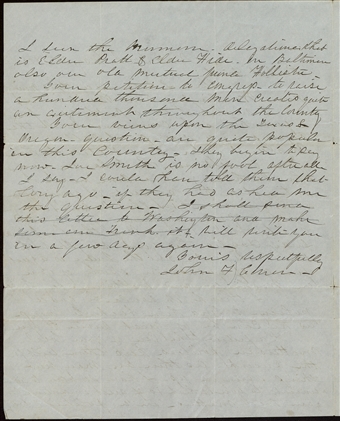 I seen the Mormon delegation that
is Elder Pratt & Elder Hide. in Baltimore
also our old mutual
Your petition to Congress to raise
a hundred thousand men creates quite
an excitement throughout the County
Your views upon the Texas &
Oregon question are quite popular
in this Country they begin to
now Smith is no fool after all
I say I could than told them that
long ago if they had asked me
the question I shall send
this letter to Washington and make
will write you
in a few days again
Yours respectfully
John